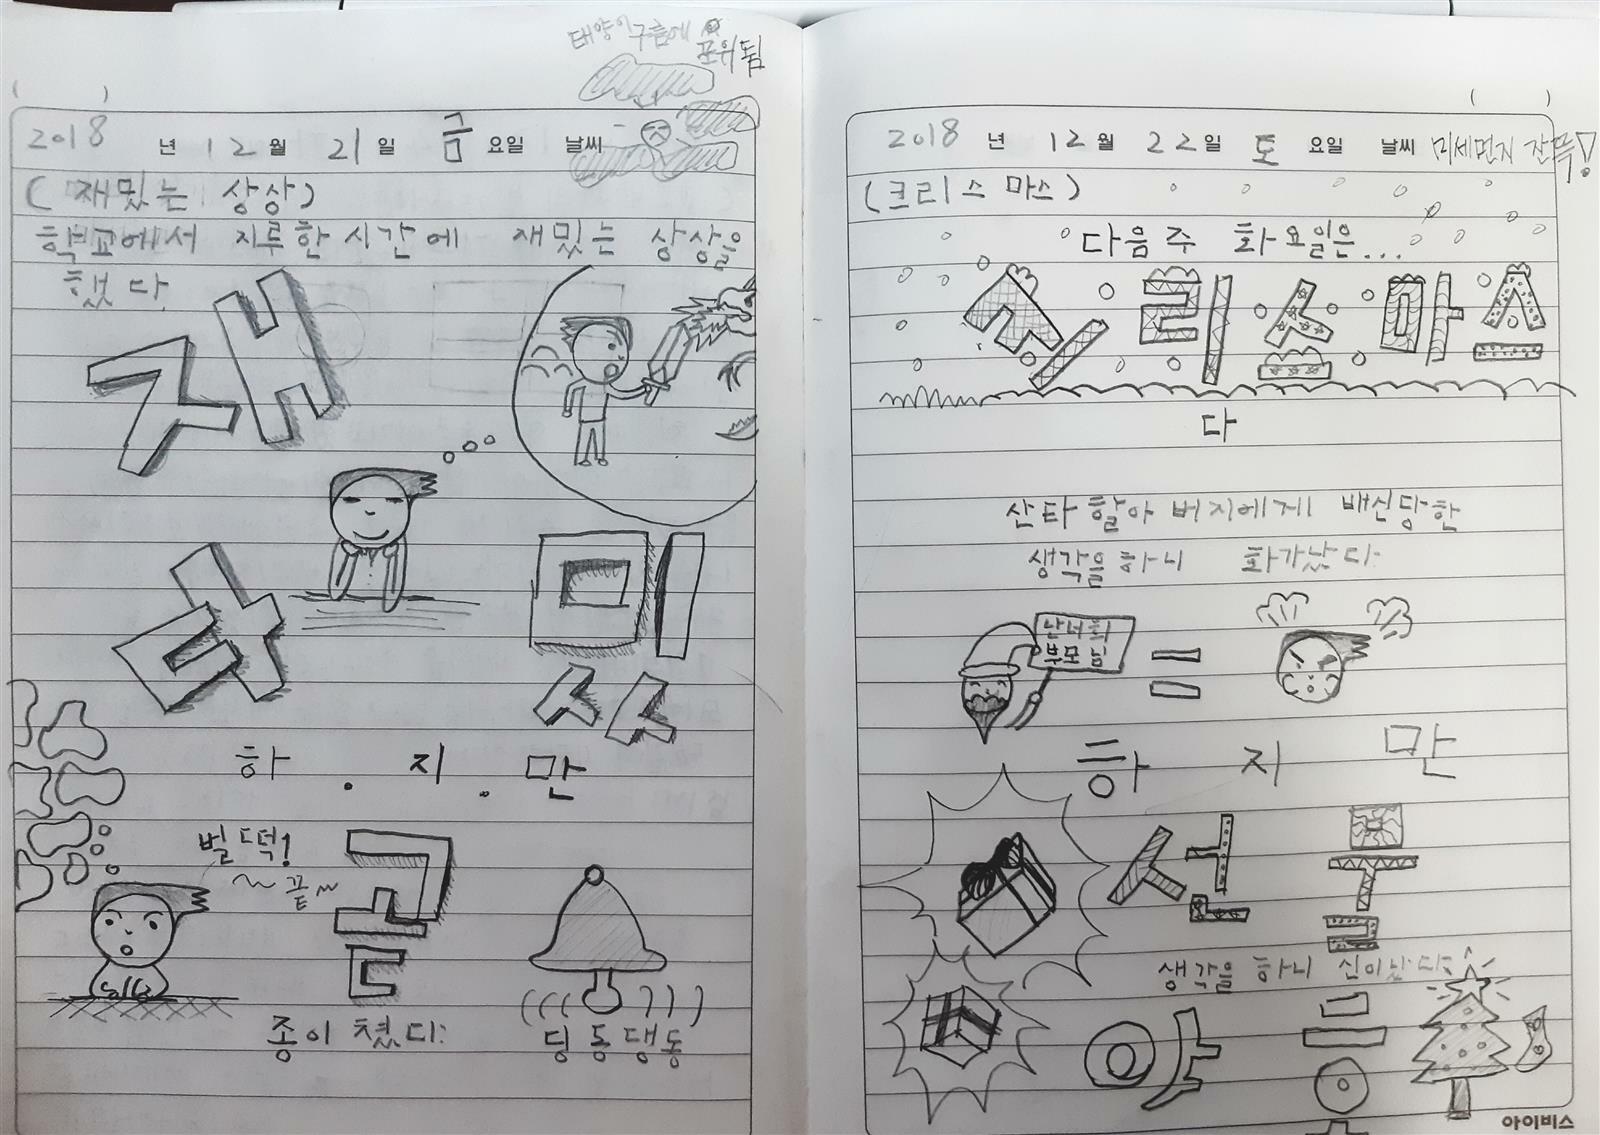 태양이 구름에
포위됨
( )
2018년 12월 21일 금요일 날씨
(재밌는 상상)
학교에서 지루한 시간에 재밌는 상상을
했다.
재
밌
타
하.지.만
벌떡!
~끝~
곧
종이 쳤다.
딩동댕동
( )
2018년 12월 22일 토요일 날씨 미세먼지 잔뜩!
(크리스마스)
다음주 화요일은...
크리스마스
다
산타 할아버지에게 배신당한
생각을 하니 화가났다.
난 너희
부모님
=
하 지 만
선물
생각을 하니 신이난다.
야호
아이비스